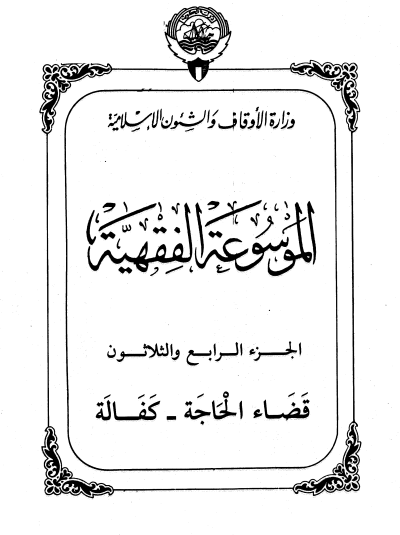 وزارة الأوقاف والشئون الإسلامية
الموسوعة الفقهية
الجزء الرابع والثلاثون
قَضَاء الْحَاجَة - كَفَالَة